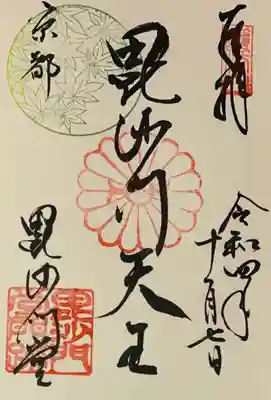 奉拝
令和四年
十一月七日
毘沙門天王
京都
毘沙門堂